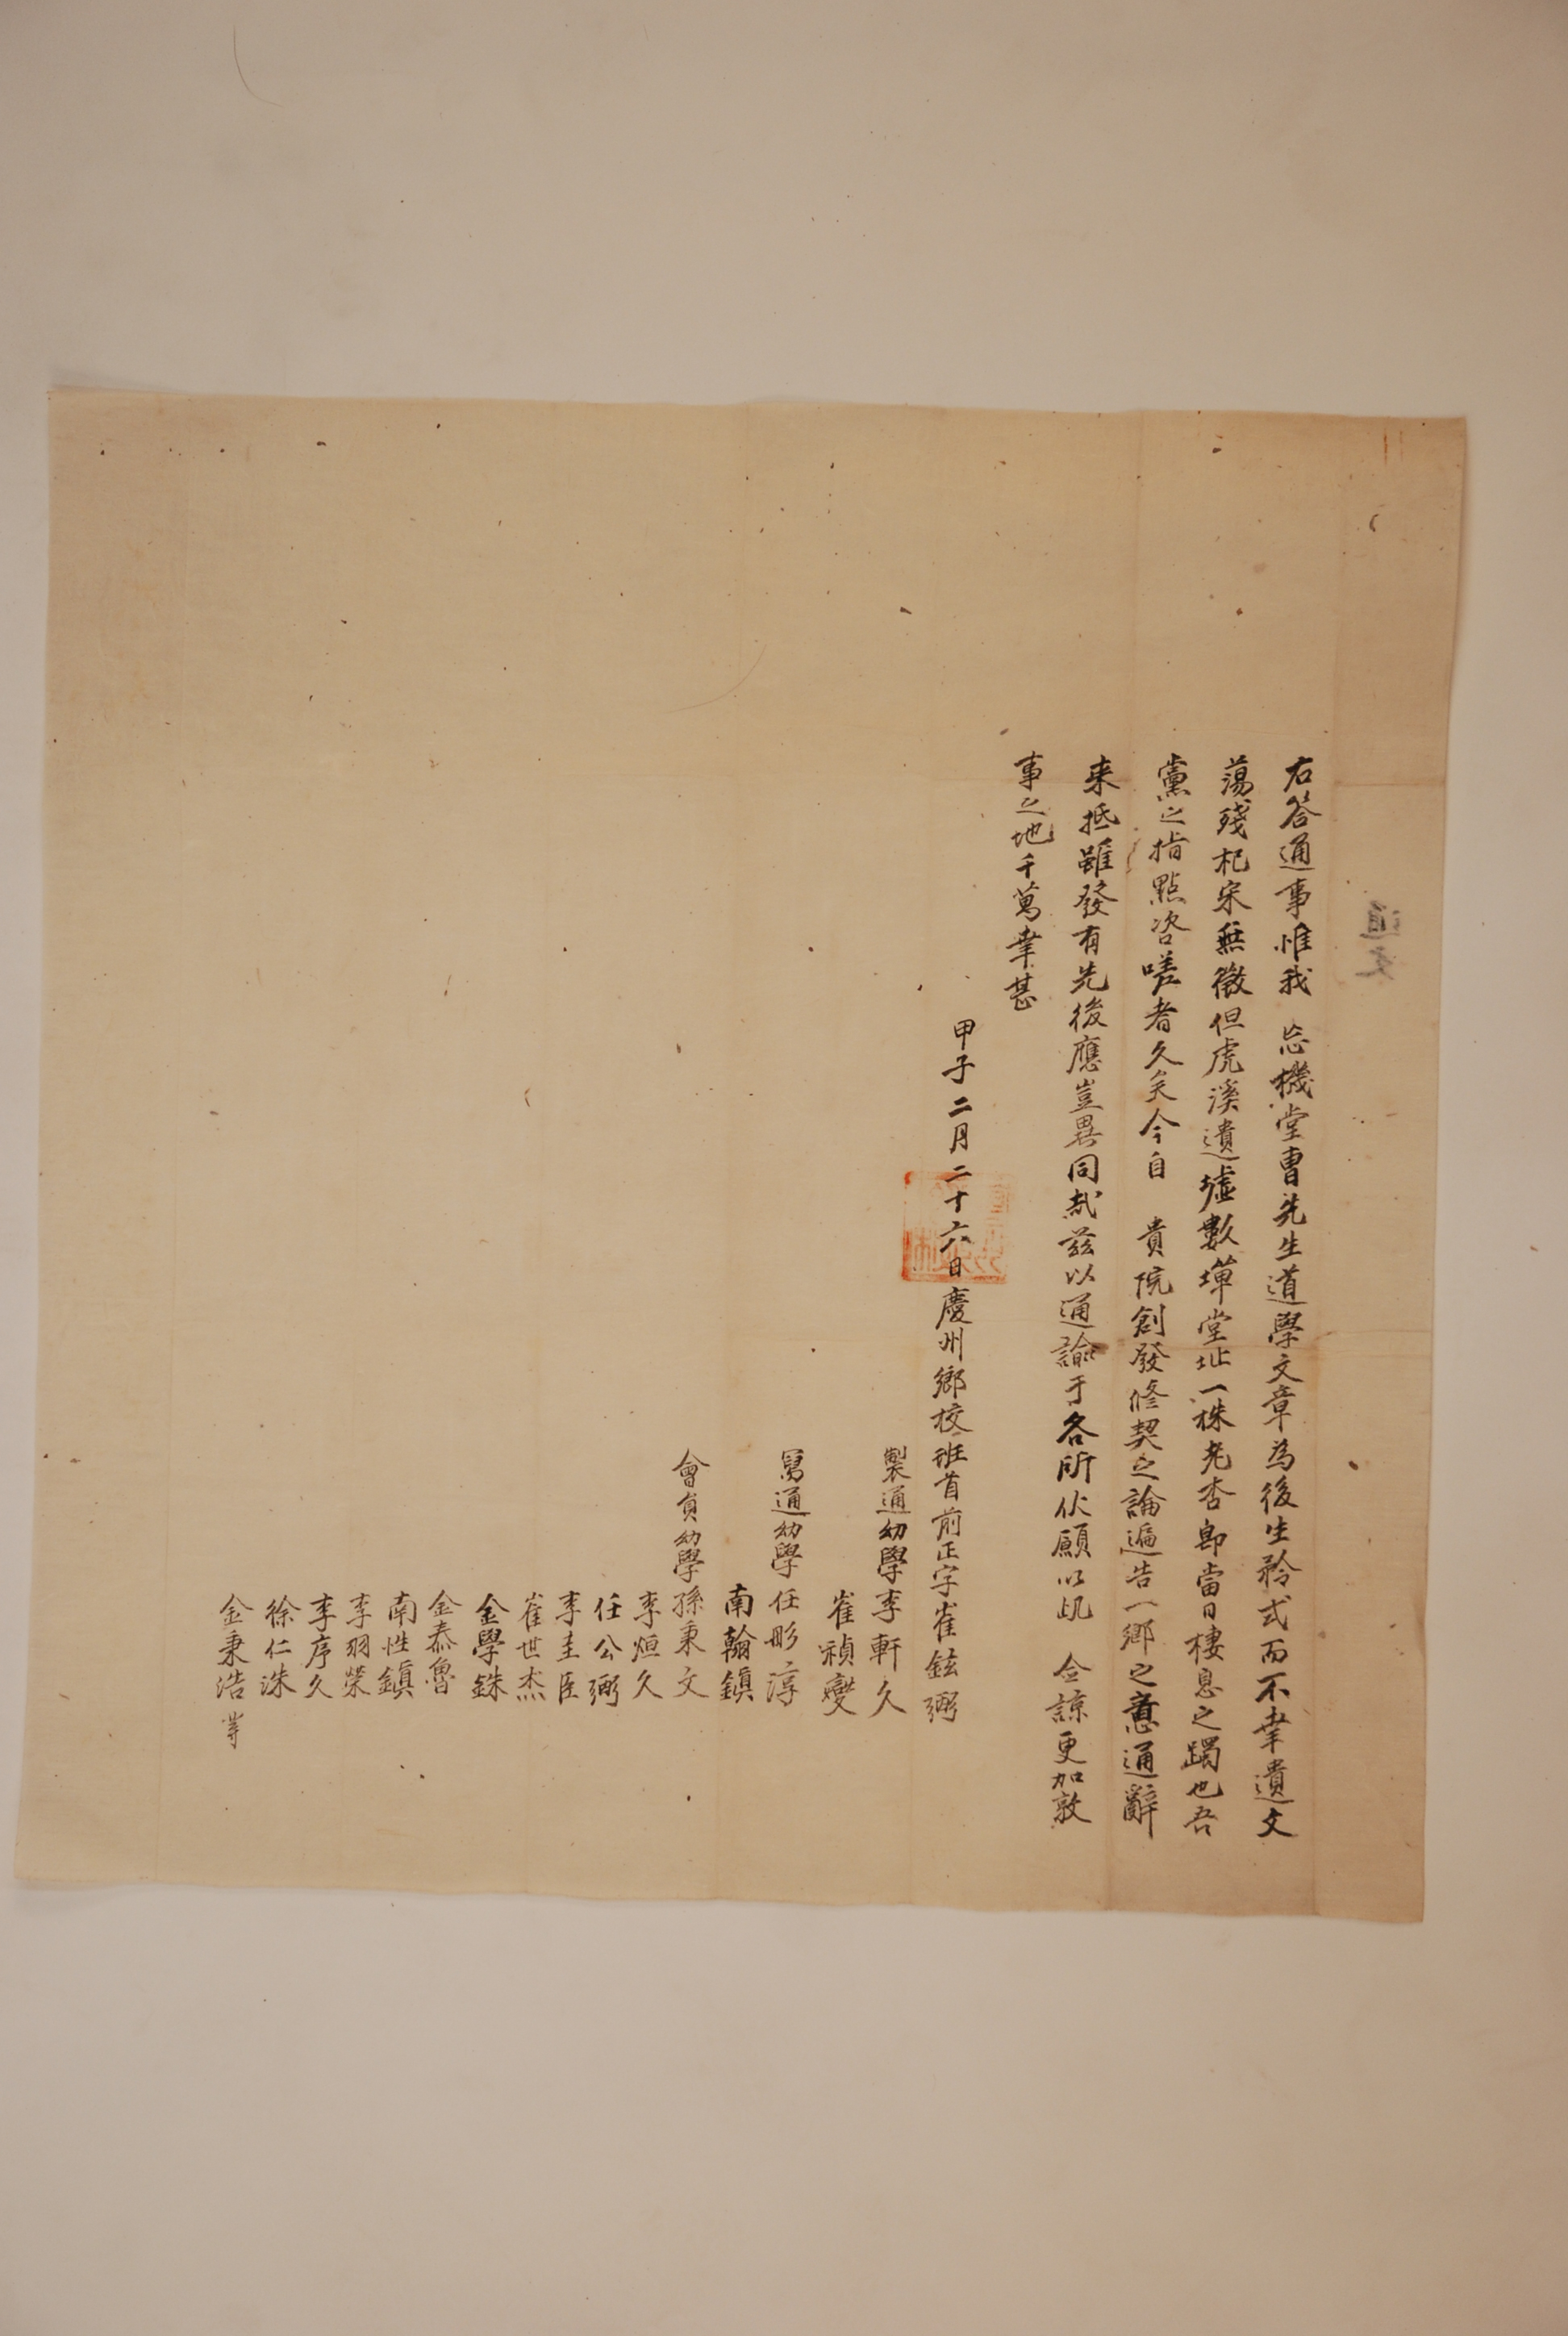 右答通事惟我 忘機堂曺先生道學文章為後生矜式而不幸遺文
蕩殘杞宋無徵但虎溪遺墟數墠堂址一株老杏卽當日棲息之躅也吾
黨之指點咨嗟者久矣今自 貴院創發修契之論遍告一鄕之意通辭
来抵雖發有先後應豈異同哉玆以通諭于各所伏願以此 僉諒更加敦
事之地千萬幸甚
甲子二月二十六日慶州鄕校班首前正字崔鉉弼
製通幼學李軒久
崔禎燮
寫通幼學任彤淳
南翰鎭
會員幼學孫秉文
李烜久
任公弼
李圭臣
崔世杰
金學銖
金泰魯
南性鎭
李羽榮
李序久
徐仁洙
金秉浩 等